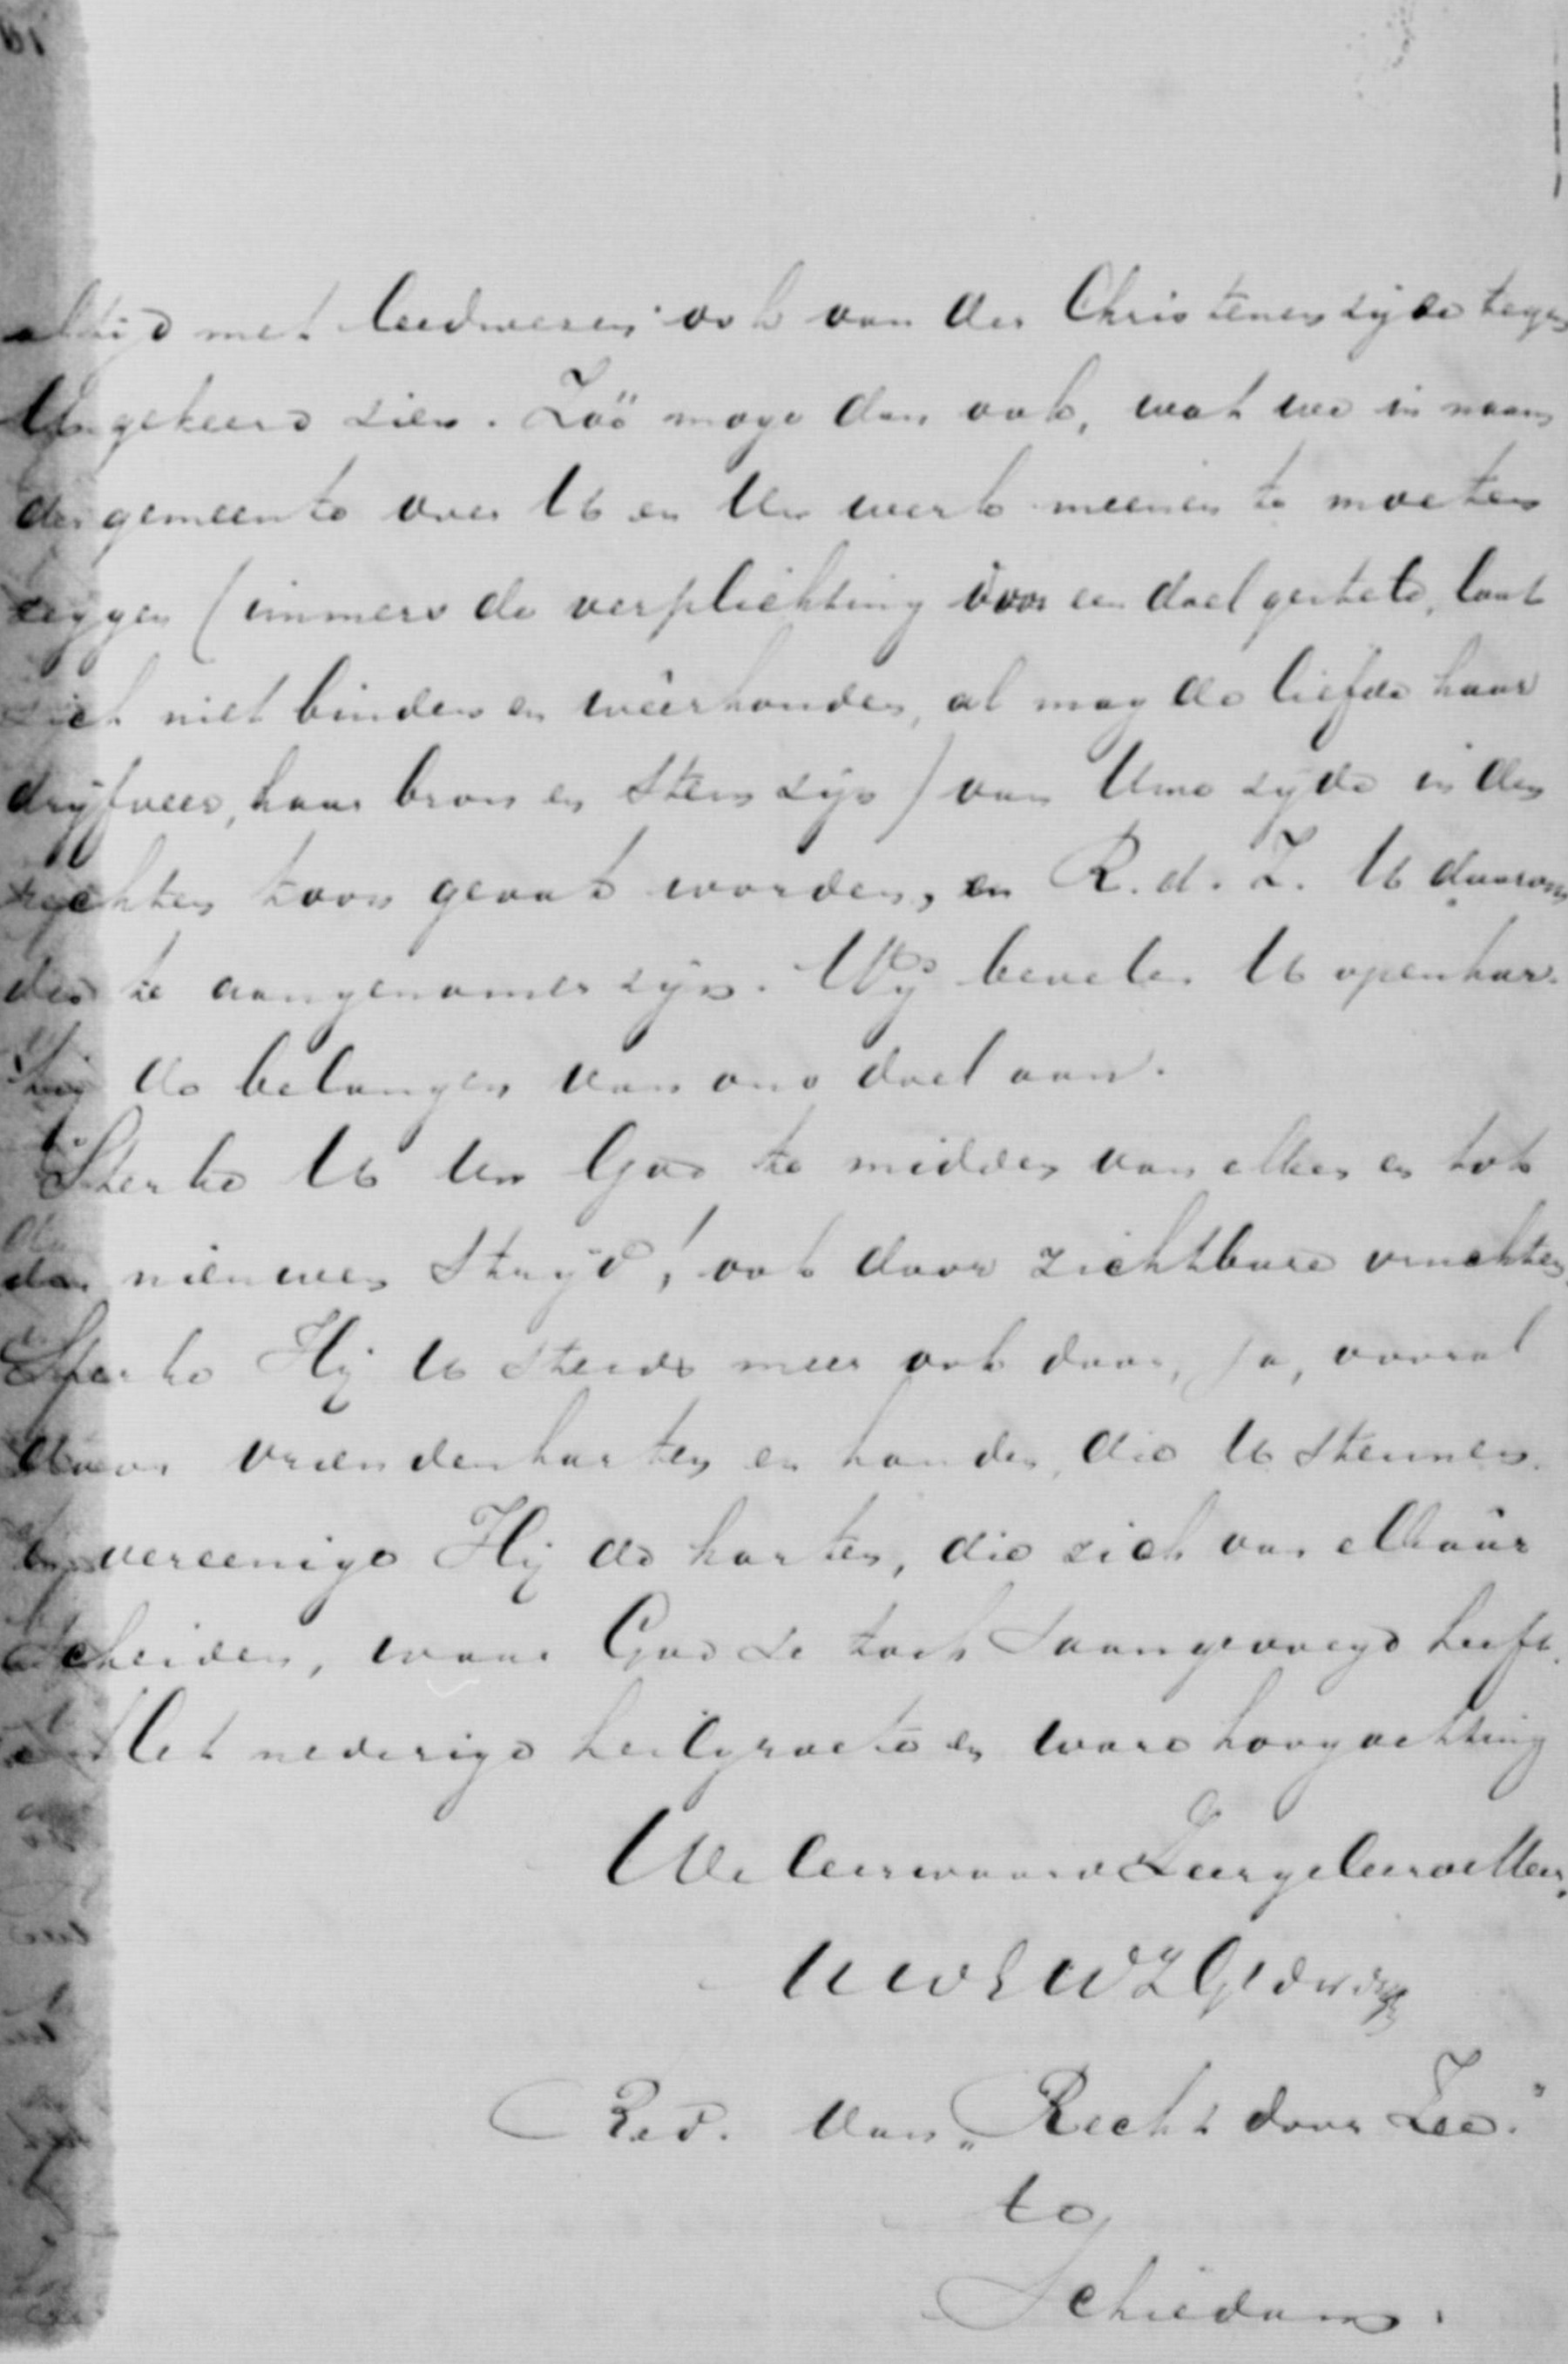 altijd met leedwezen ook van der Christenen zijde tegen
U gekeerd zien. Zóó moge dan ook, wat we in naam
der gemeente over U en Uw werk meenen te moeten
zeggen (immers de verplichting voor een doel gesteld, laat
zich niet binden en weêrhouden, al mag de liefde haar
drijfveer, haar bron en stem zijn) van Uwe zijde in den
rechten toon gevat worden, en R. d. Z. U daarom
des te aangenamer zijn. Wij bevelen U openhar-
tig de belangen van ons doel aan.
Sterke U Uw God te midden van alles en tot
den nieuwen strijd! ook door zichtbare vruchten.
Sterke Hij U steeds meer ook door, ja, vooral
door vriendenharten en handen, die U steunen.
En vereenige Hij de harten, die zich van elkaâr
scheiden, waar God ze toch saamgevoegd heeft.
Met nederige heilgroete en ware hoogachting
WelEerwaard Zeergeleerde Heer,
U W E W Z G d w d
Red. van "Recht door Zee."
te
Schiedam.